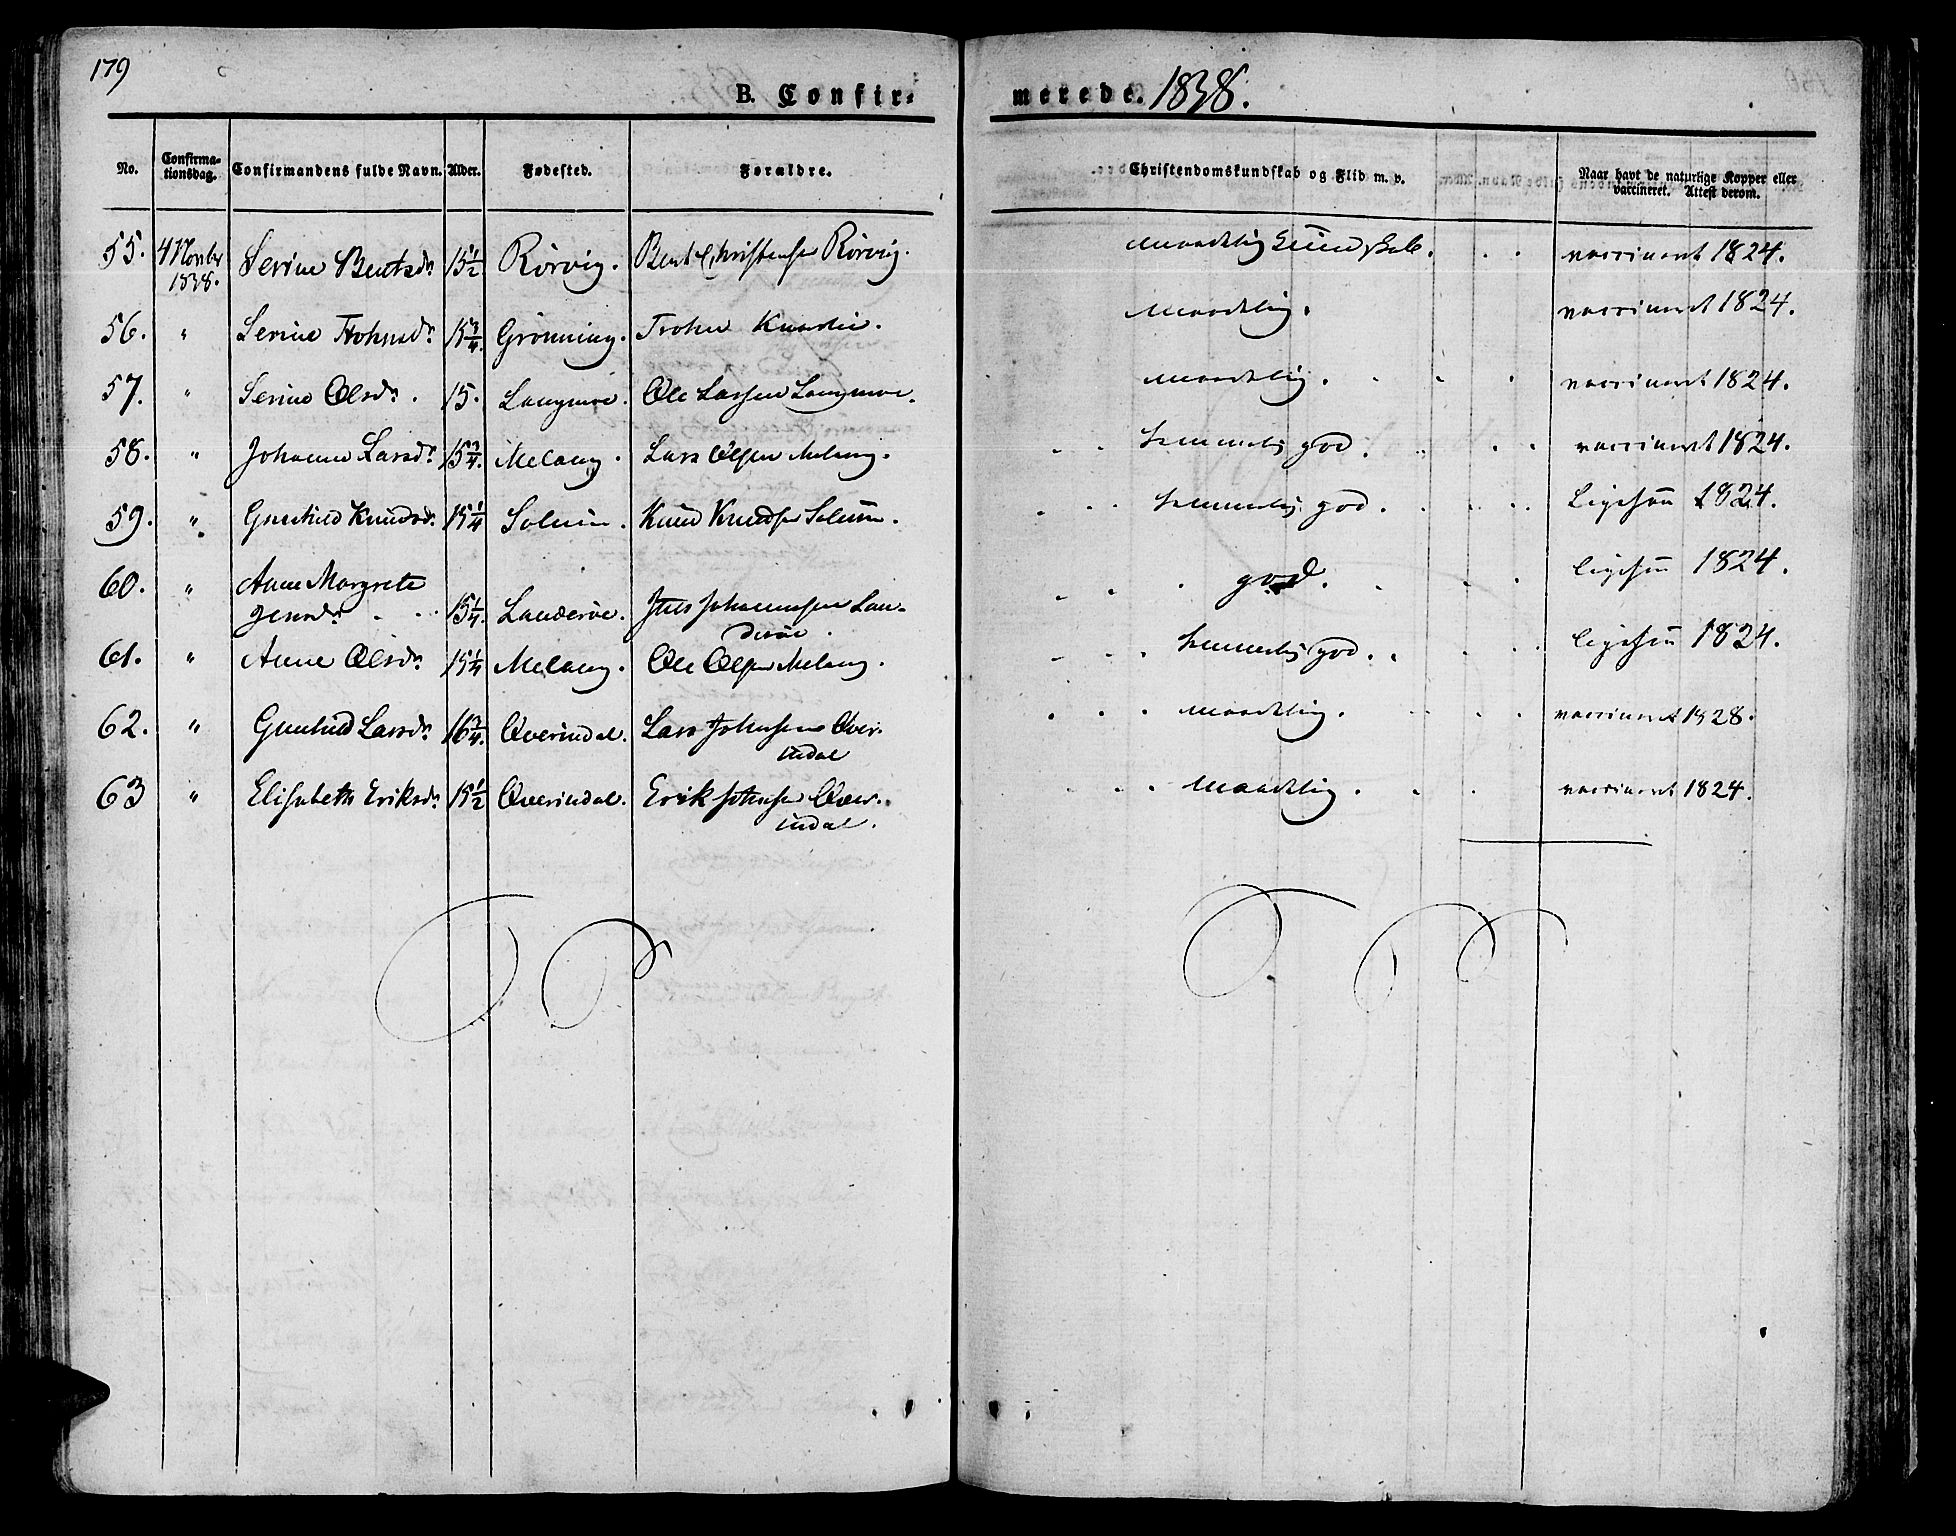 179
B. Confir-
merede. 1838.
No. Confirma-tionsdag. Confirmandens fulde Navn. Alder. Fødested. Forældre. Christendomskundskab og Flid m. v. Naar havt de naturlige Kopper eller vaccineret. Attest derom.
55. 4 Novbr 1838. Serine Bentsdr 15 1/2 Rörvig. Bent Christensen Rörvig. maadelig Kundskab. vaccineret 1824.
56. " Serine Trohnsdr 15 3/4. Grönning. Trohn maadelig. vaccineret 1824.
57. " Serine Olsdr. 15. Langmoe. Ole Larsen Langmoe. maadelig. vaccineret 1824.
58. " Johanne Larsdr 15 3/4. Melang. Lars Olsen Melang. temmelig god. vaccineret 1824.
59. " Gunhild Knudsdr 15 1/4 Solum. Knud Knudsen Solum. temmelig god. Ligesaa 1824.
60. " Anne Margrete
Jensdr. 15 1/4. Landeröe. Jens Johannesen Lan-
deröe. god. ligesaa 1824.
61. " Anne Olsdr 15 1/4 Melang. Ole Olsen Melang. temmelig god. ligesaa 1824.
62. " Gunhild Larsdr 16 3/4. Overindal. Lars Johnsen Over-
indal maadelig. vaccineret 1828.
63 " Elisabeth Eriksdr 15 1/2 Overindal. Erik Johnsen Over-
indal. maadelig. vaccineret 1824.